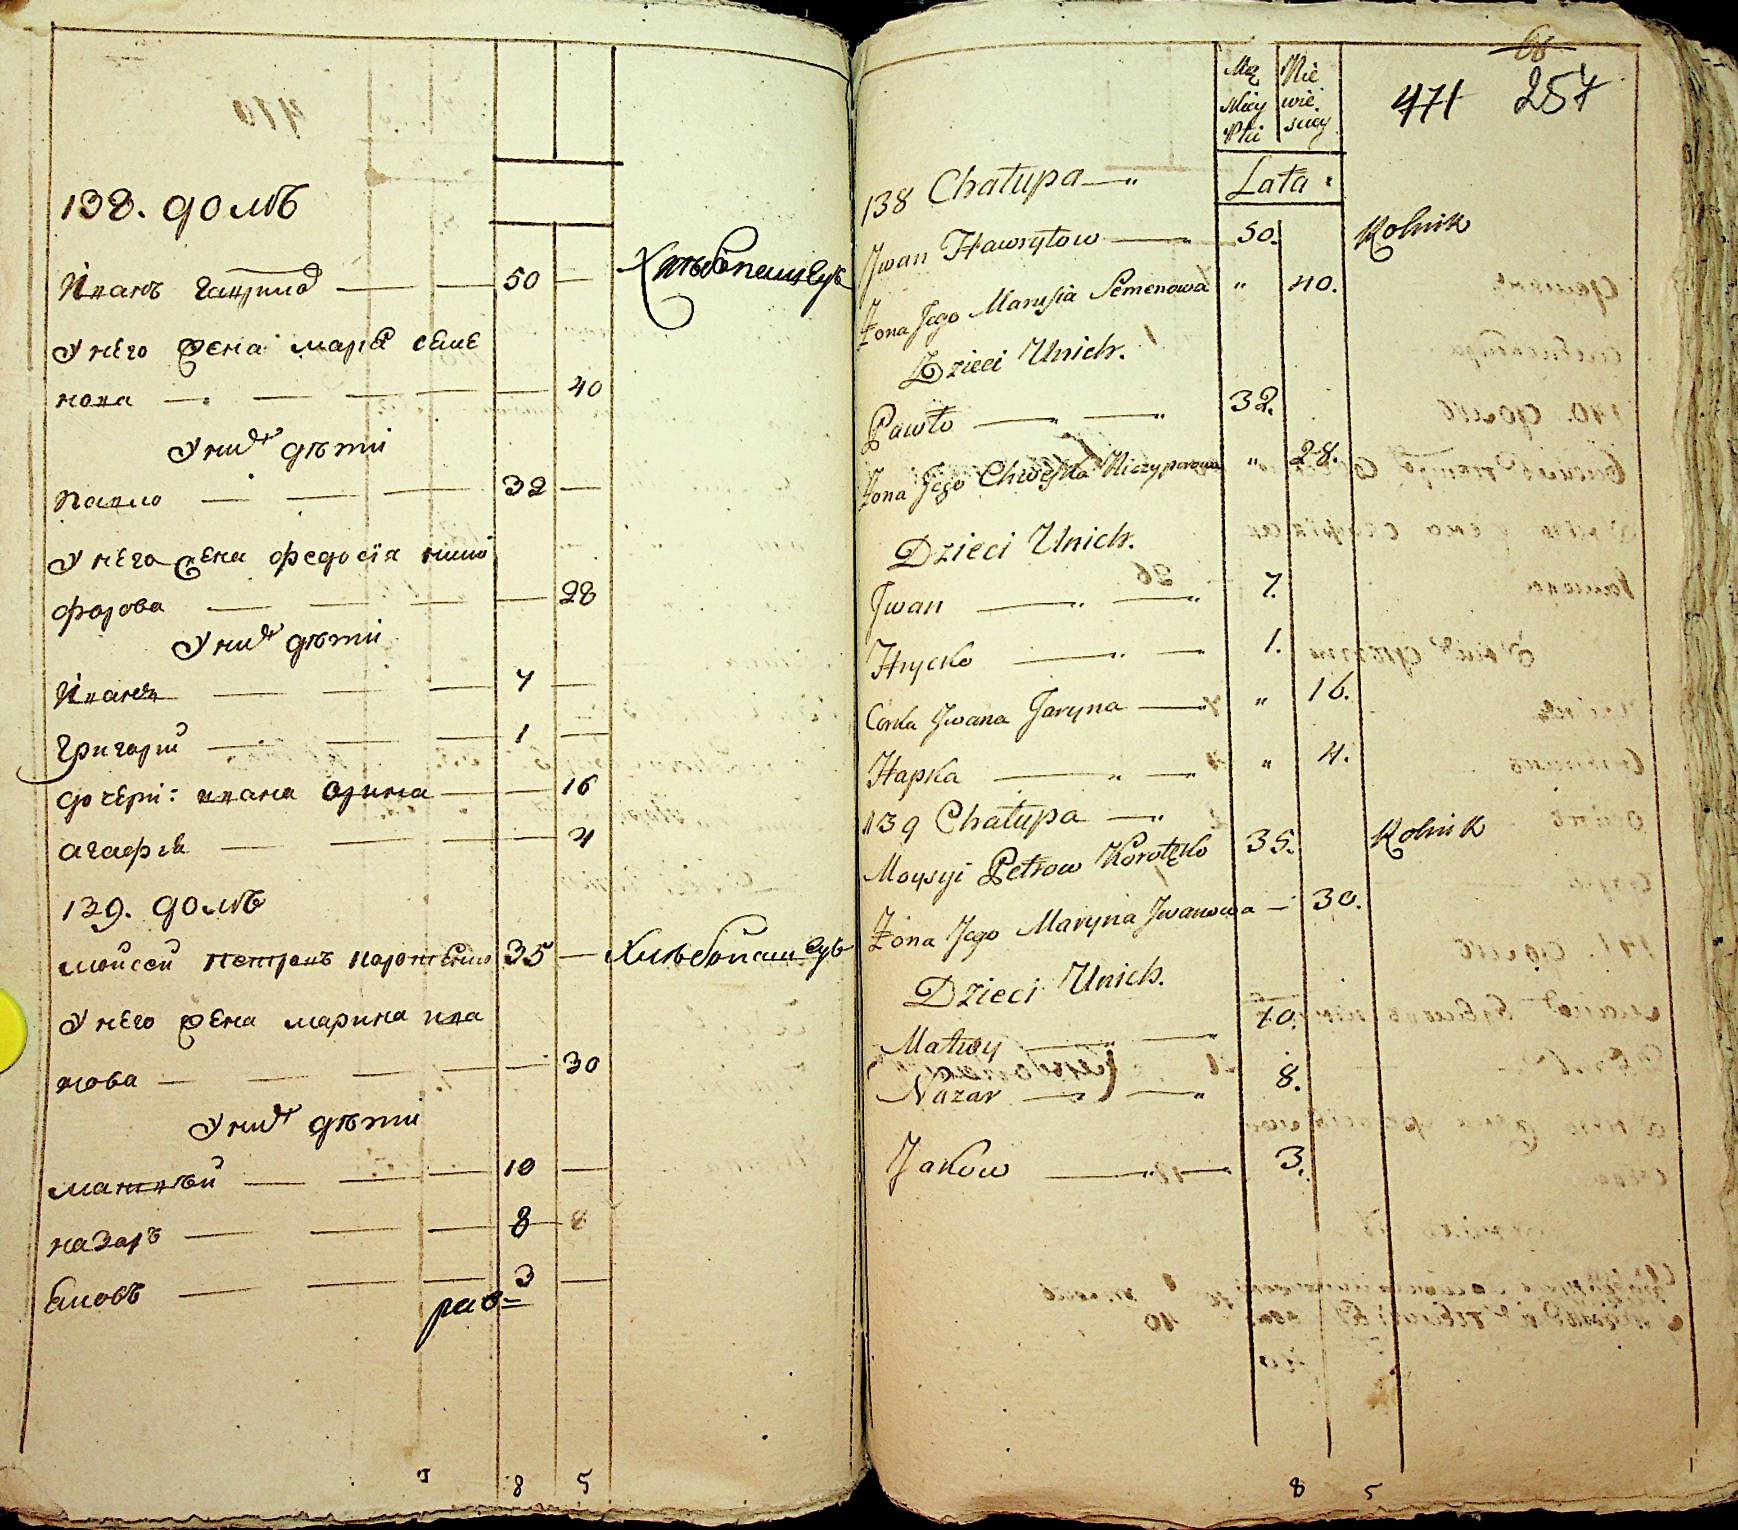 138. домъ
Иванъ гаврилов 50
У него жена марья семе
нова 40
У них дѣти
павло 32
У него жена федосїя ничи
форова 28
У них дѣти
Иванъ 7
григорий 1
дочери: ивана орина 16
агафья 4
139. домъ
мойсей петровъ коротченко 35
У него жена марина ива
нова 30
У них дѣти
матвѣй 10
назаръ 8 8
яковъ 3
8 5
Хлѣбопашецъ
Хлѣбопашецъ
Mę Nie
skiey wie
Płci sciey
Lata
68
471 257
138 Chałupa
Jwan Hawryłow 50. Rolnik
Żona Jego Marusia Semenowa " 40.
Dzieci Unich.
Pawło 32.
Żona Jego Chweska Niczyporowa " 28.
Dzieci Unich.
Jwan 7.
Hrycko 1.
Corka Jwana Jaryna " 16.
Hapka " 4.
139 Chałupa
Moysyi Petrow Korotęko 35. Rolnik
Żona Jego Maryna Jwanowa 30.
Dzieci Unich.
Matwiy 10.
Nazar 8.
Jakow 3.
8 5